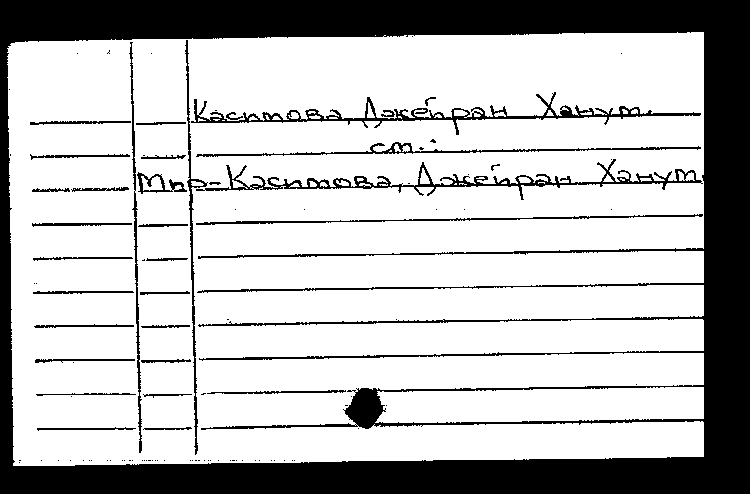 Касимова, Джейран Ханум.
см.:
Мир-Касимова, Джейран Ханум.